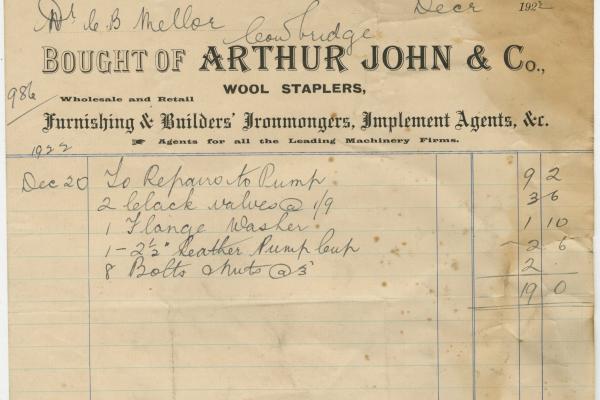 Mr C B Mellor Decr 1922
Cowbridge
BOUGHT OF ARTHUR JOHN & Co.,
WOOL STAPLERS,
986
Wholesale and Retail
Furnishing & Builders' Ironmongers, Implement Agents, &c.
Agents for all the Leading Machinery Firms.
1922
Dec 20 To Repairs to Pump 9 2
2 Clack valves @ 1/9 3 6
1 Flange Washer 1 10
1 - 2½" Leather Pump Cup 2 6
8 Bolts & nuts @ 3 2
19 0